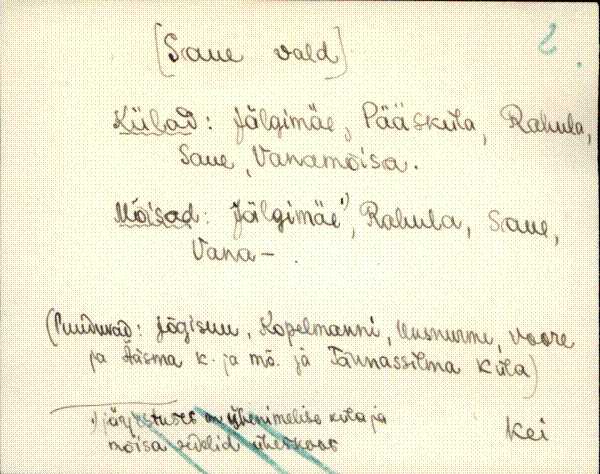 [Saue vald]
Külad: Jälgimäe, Pääsküla, Rahula,
Saue, Vanamõisa.
Mõisad: Jälgimäe¹), Rahula, Saue,
Vana- .
(Puuduvad: Jõgisuu, Kopelmanni, Uusnurme, Voore
ja Ääsma k. ja mõ. ja Tännassilma küla)
¹) järjestuses on ühenimelise küla ja
mõisa sedelid üheskoos
Kei